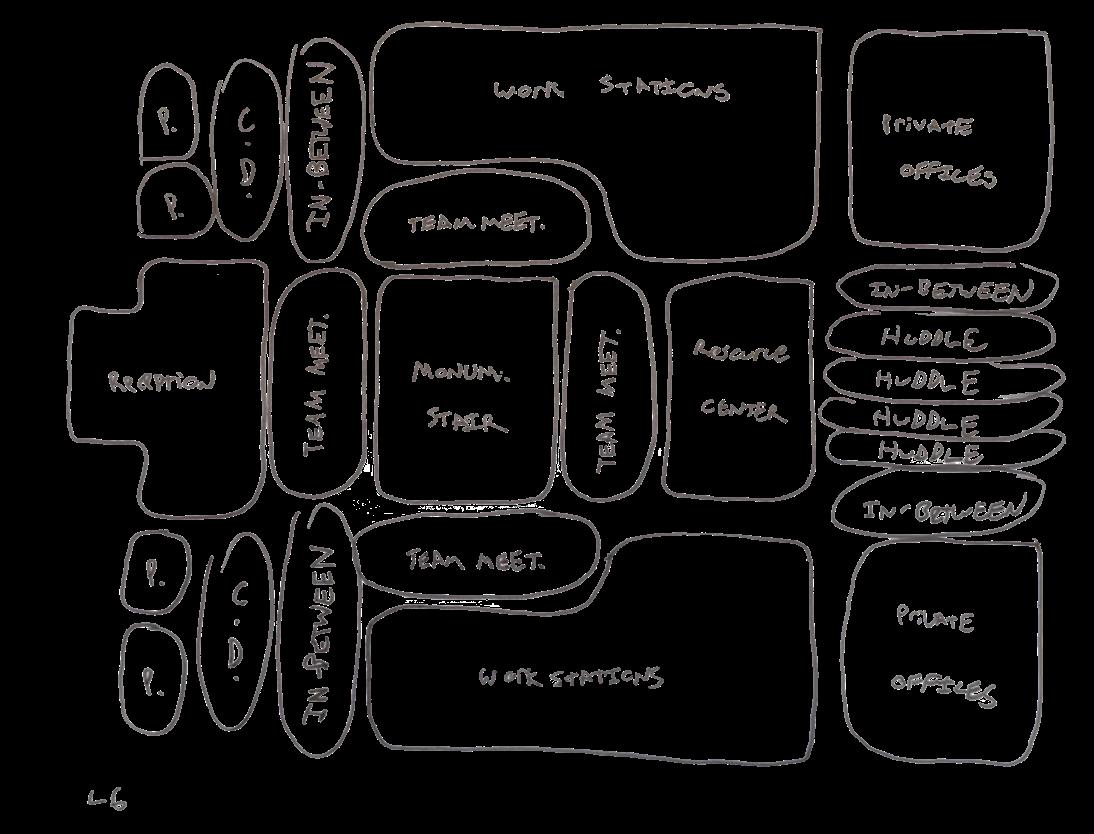 WORK STATIONS
P.
C.D.
IN-BETWEEN
PRIVATE
OFFICES
P.
TEAM MEET.
IN-BETWEEN
HUDDLE
RECEPTION
TEAM MEET.
MONUM.
STAIR
TEAM MEET.
RESOURCE
CENTER
HUDDLE
HUDDLE
HUDDLE
IN-BETWEEN
P.
C.D.
IN-BETWEEN
TEAM MEET.
PRIVATE
OFFICES
P.
WORK STATIONS
L6